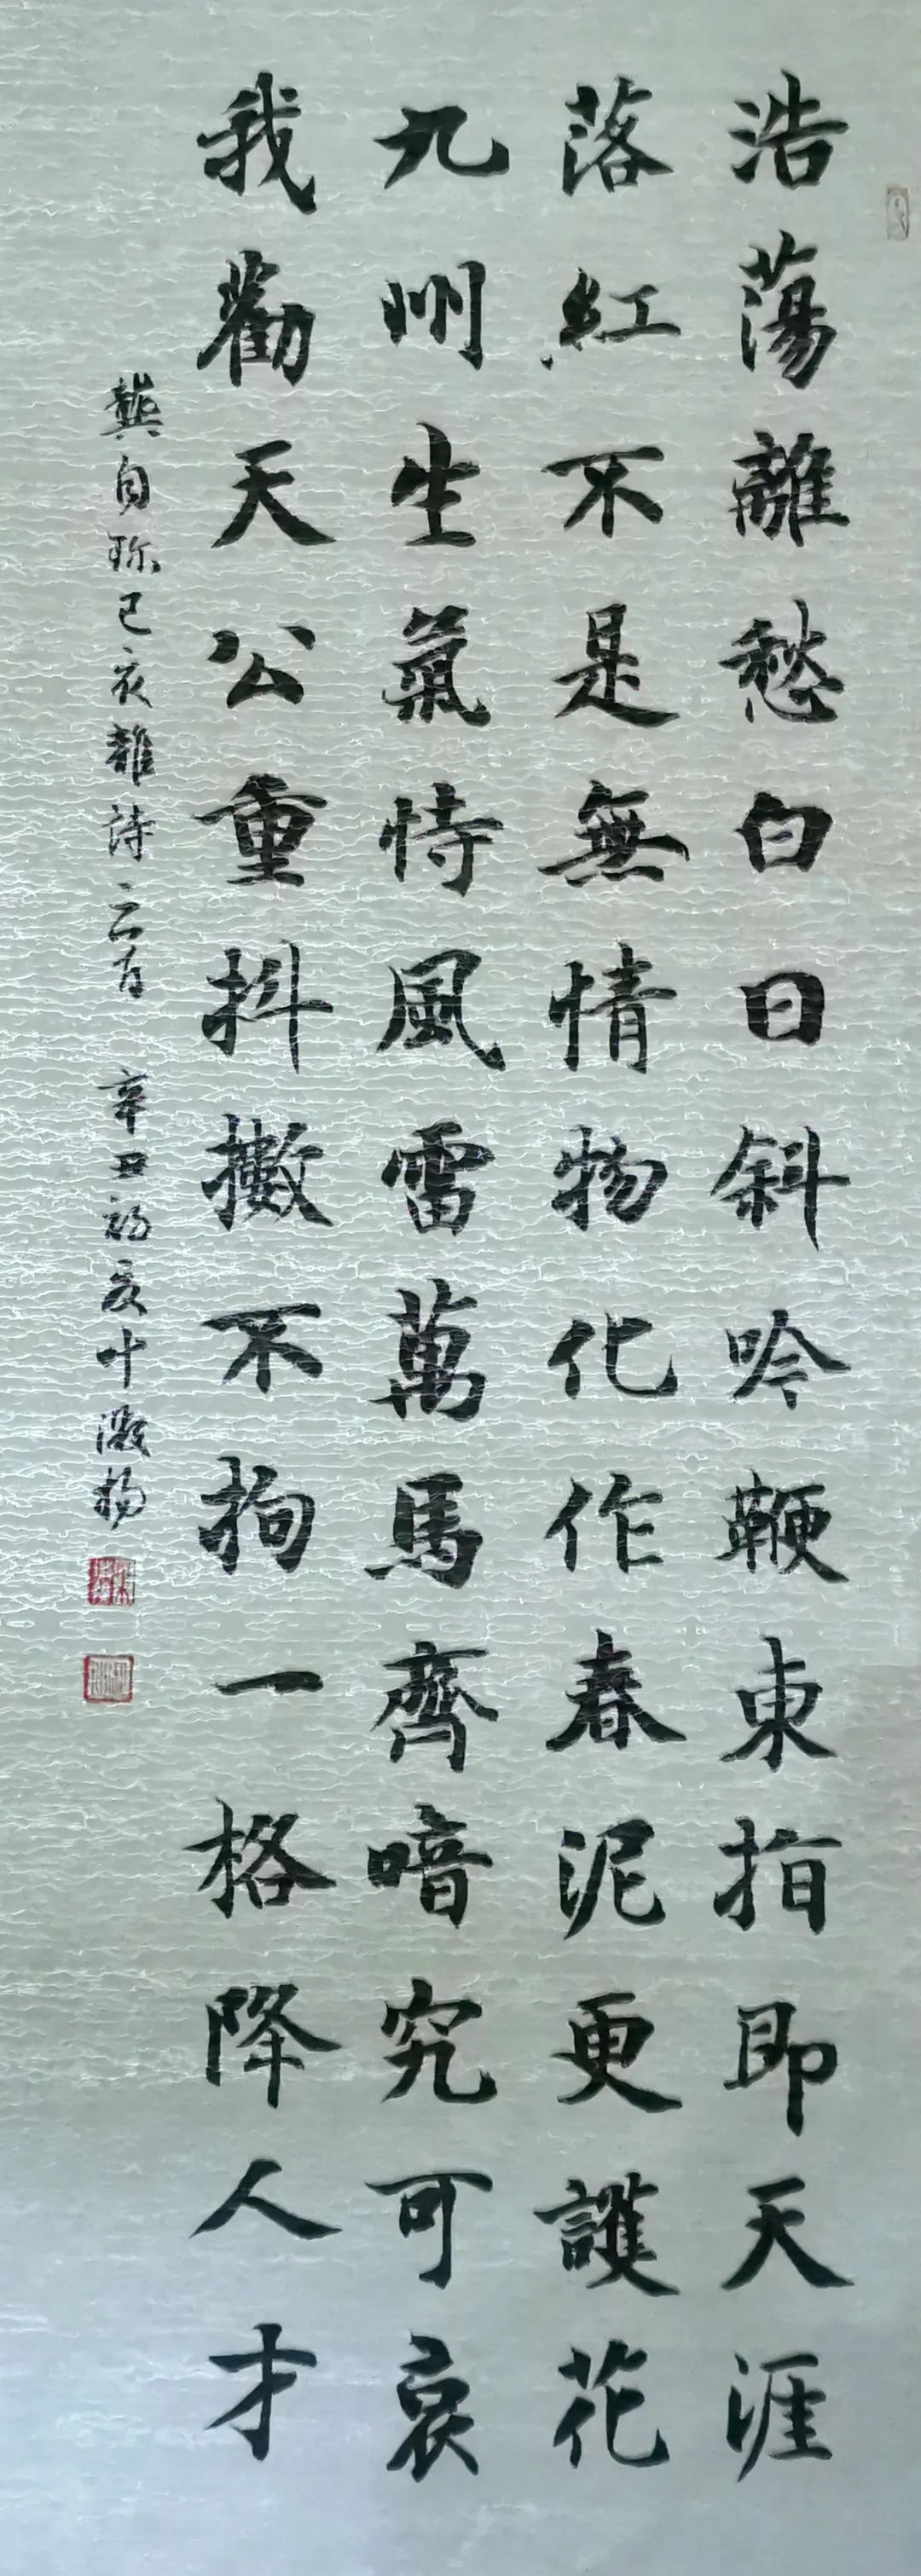 浩蕩離愁白日斜吟鞭東指即天涯
落紅不是無情物化作春泥更護花
九州生氣恃風雷萬馬齊喑究可哀
我勸天公重抖擻不拘一格降人才
龔自珎己亥雜詩二首 辛丑初夏叶